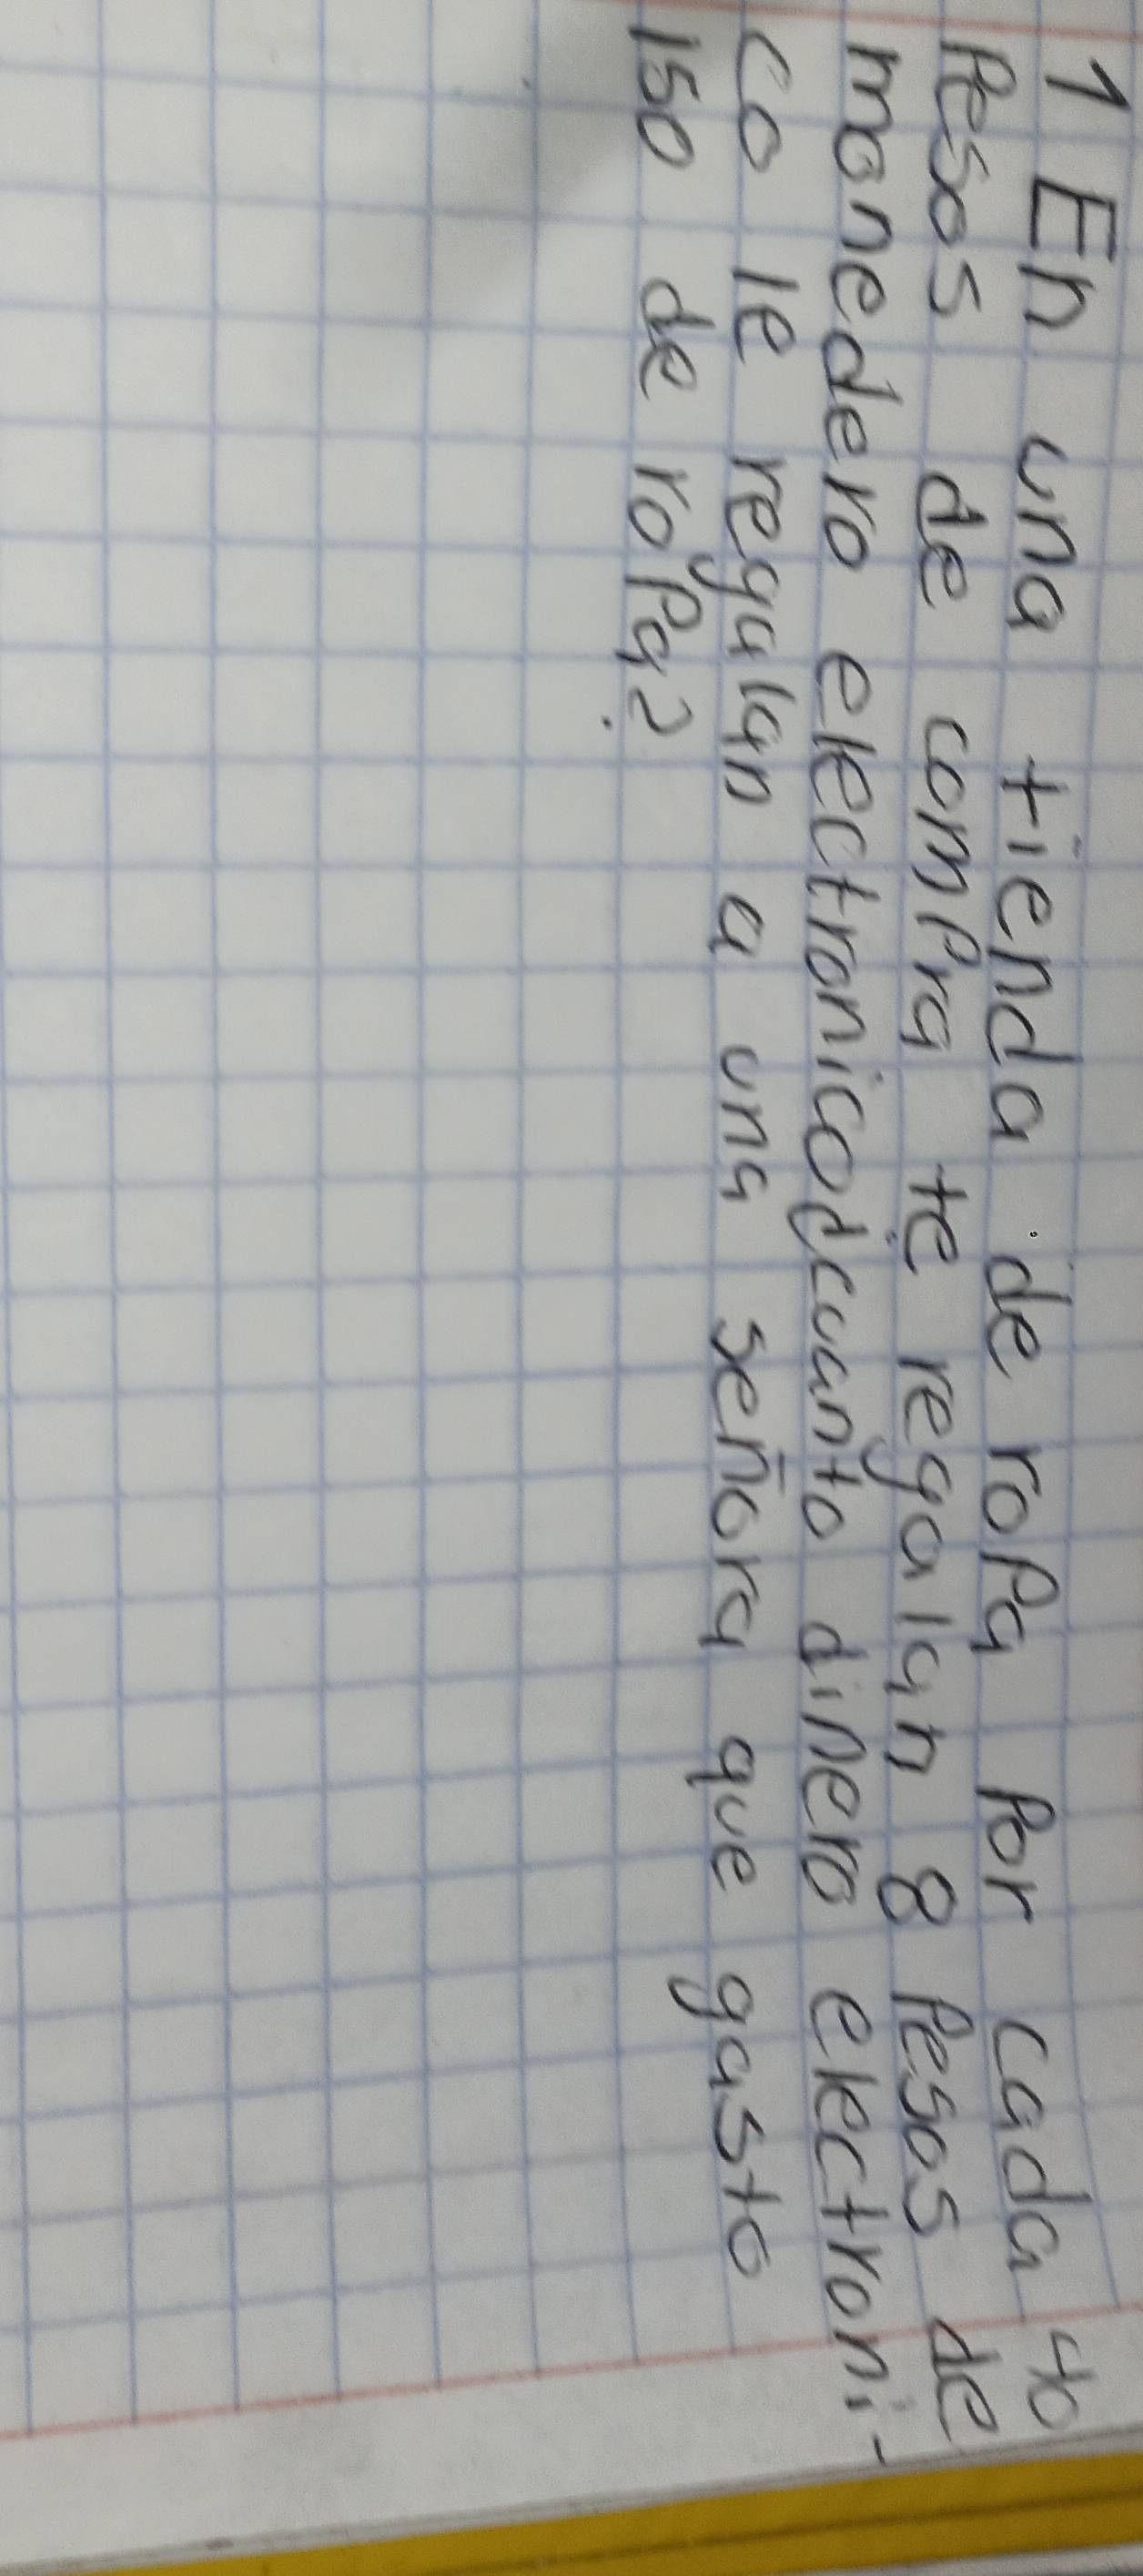 1 En una tienda de ropa por cada 40
Pesos de compra te regalan 8 Pesos de
monedero electronico¿cuanto dinero electroni-
co le regalan a una señora que gasto
150 de ropa?